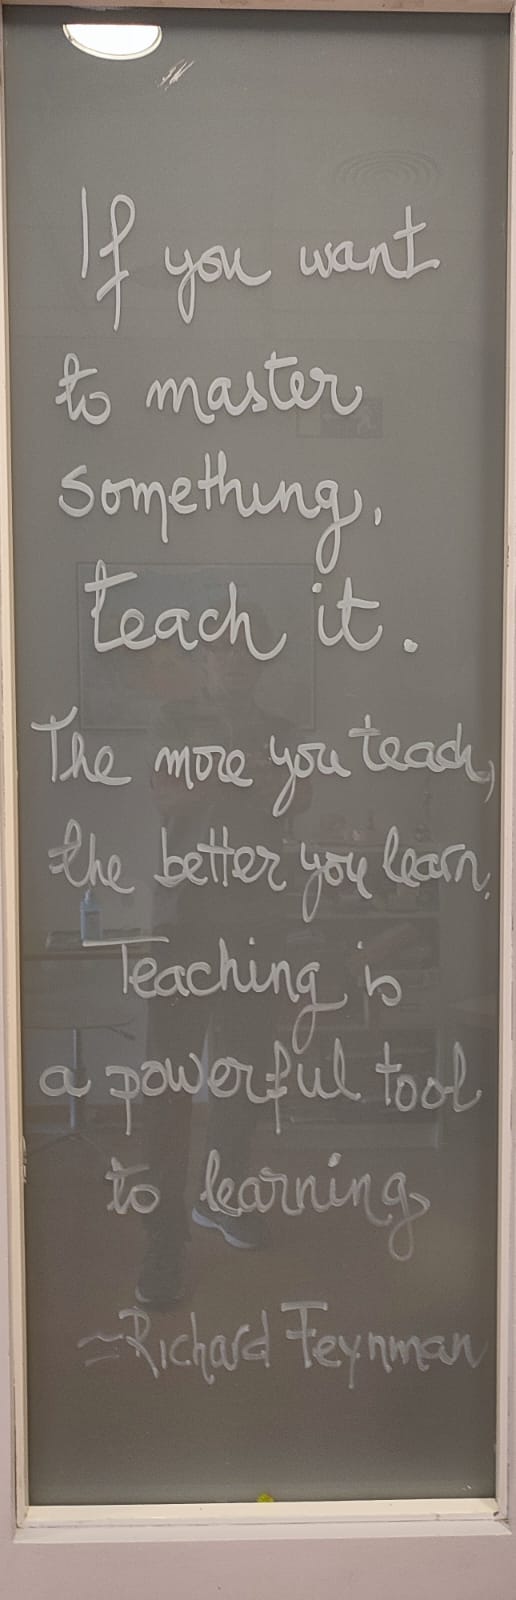 If you want
to master
something,
teach it.
The more you teach,
the better you learn.
Teaching is
a powerful tool
to learning
~Richard Feynman